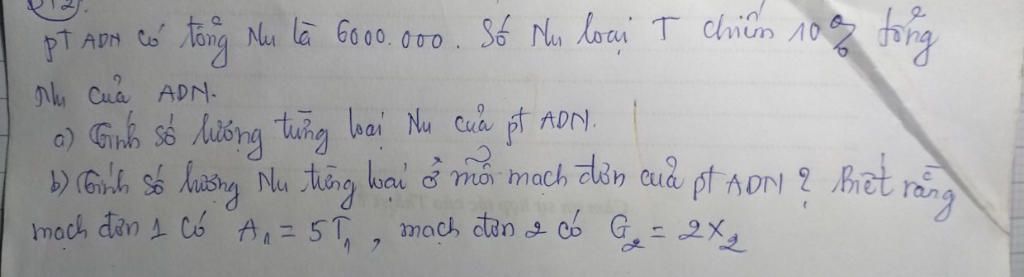 pT ADN có tổng Nu là 6000.000. Số Nu loại T chiếm 10% tổng
Nu của ADN.
a) Tính số lượng từng loại Nu của pt ADN.
b) Tính số lượng Nu từng loại ở mỗi mạch đơn của pt ADN? Biết rằng
mạch đơn 1 có A₁ = 5T₁, mạch đơn 2 có G₂ = 2X₂